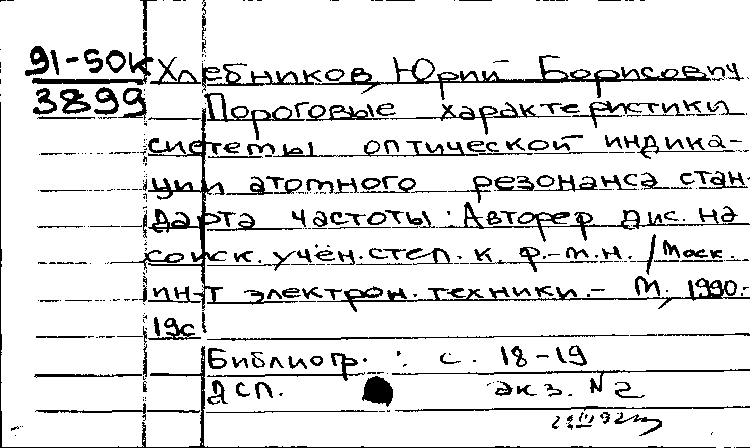 91-50К Хлебников, Юрий Борисович
3899 Пороговые характеристики
системы оптической индика-
ции атомного резонанса стан-
дарта частоты: Автореф. дис. на
соиск. учён. степ. к. ф.-т.н. / Моск.
ин-т электрон. техники. - М., 1990.-
19с
Библиогр. : с. 18-19
ДСП. экз. N2